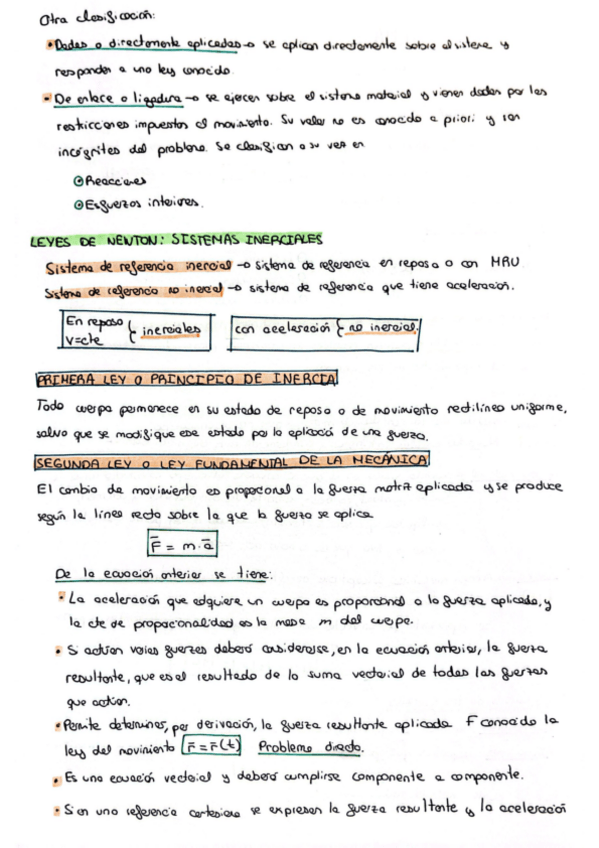 Otra clasificación:
• Dadas o directamente aplicadas → se aplican directamente sobre el sistema y
responden a una ley conocida.
• De enlace o ligadura → se ejercen sobre el sistema material y vienen dadas por las
restricciones impuestas al movimiento. Su valor no es conocido a priori y son
incógnitas del problema. Se clasifican a su vez en
⊙ Reacciones
⊙ Esfuerzos interiores.
LEYES DE NEWTON: SISTEMAS INERCIALES
Sistema de referencia inercial → sistema de referencia en reposo o con MRU
Sistema de referencia no inercial → sistema de referencia que tiene aceleración.
En reposo
V=cte { inerciales
con aceleración { no inercial.
PRIMERA LEY O PRINCIPIO DE INERCIA
Todo cuerpo permanece en su estado de reposo o de movimiento rectilíneo uniforme,
salvo que se modifique ese estado por la aplicación de una fuerza.
SEGUNDA LEY O LEY FUNDAMENTAL DE LA MECÁNICA
El cambio de movimiento es proporcional a la fuerza motriz aplicada y se produce
según la línea recta sobre la que la fuerza se aplica
F̄ = m·ā
De la ecuación anterior se tiene:
• La aceleración que adquiere un cuerpo es proporcional a la fuerza aplicada, y
la cte de proporcionalidad es la masa m del cuerpo.
• Si actúan varias fuerzas deberá considerarse, en la ecuación anterior, la fuerza
resultante, que es el resultado de la suma vectorial de todas las fuerzas
que actúan.
• Permite determinar, por derivación, la fuerza resultante aplicada F conocida la
ley del movimiento r̄ = r̄(t) Problema directo.
• Es una ecuación vectorial y deberá cumplirse componente a componente.
• Si en una referencia cartesiana se expresan la fuerza resultante y la aceleración